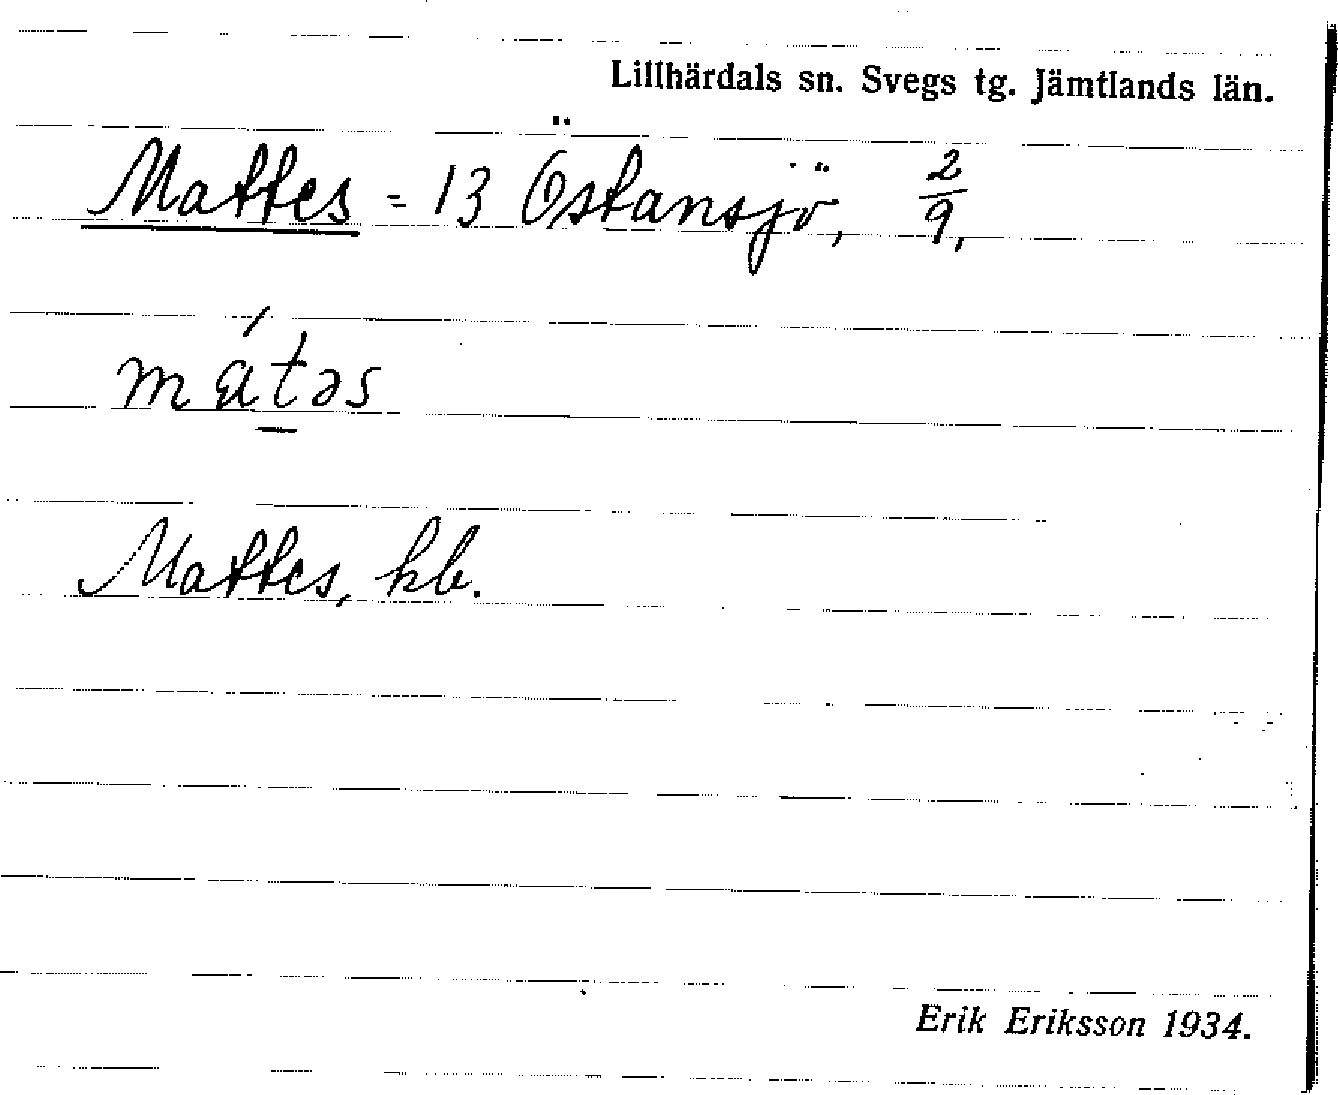 Lillhärdals sn. Svegs tg. Jämtlands län.
Mattes = 13 Östansjö, 2/9,
mátəs
Mattes, kb.
Erik Eriksson 1934.